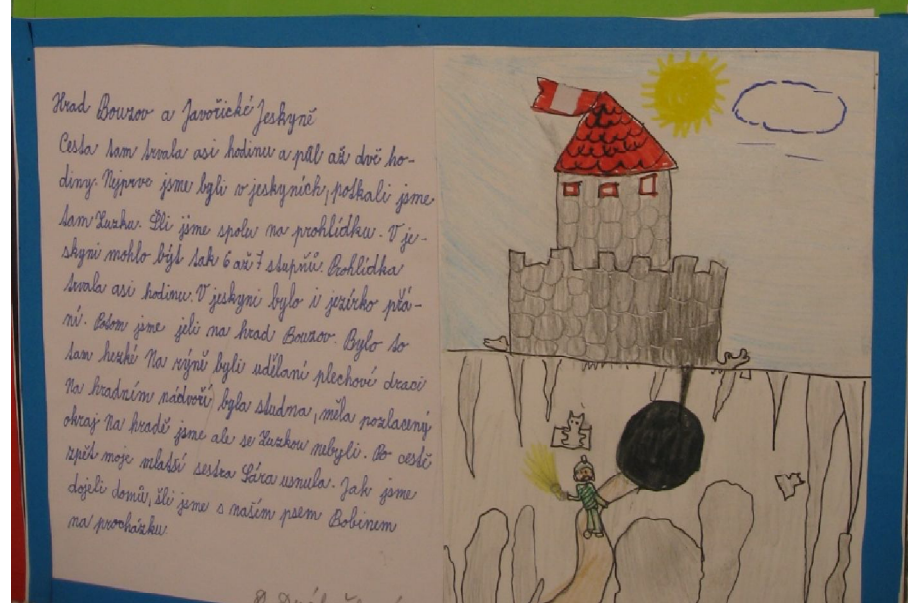 Hrad Bouzov a Javořické Jeskyně
Cesta tam trvala asi hodinu a půl až dvě ho-
diny. Nejprve jsme byli v jeskyních, potkali jsme
tam Zuzku. Šli jsme spolu na prohlídku. V je-
skyni mohlo být tak 6 až 7 stupňů. Prohlídka
trvala asi hodinu. V jeskyni bylo i jezírko přá-
ní. Potom jsme jeli na hrad Bouzov. Bylo to
tam hezké Na rýně byli udělaní plechoví draci
Na hradním nádvoří byla studna, měla pozlacený
okraj Na hradě jsme ale se Zuzkou nebyli. Po cestě
zpět moje mladší sestra Sára usnula. Jak jsme
dojeli domů, šli jsme s naším psem Bobinem
na procházku.